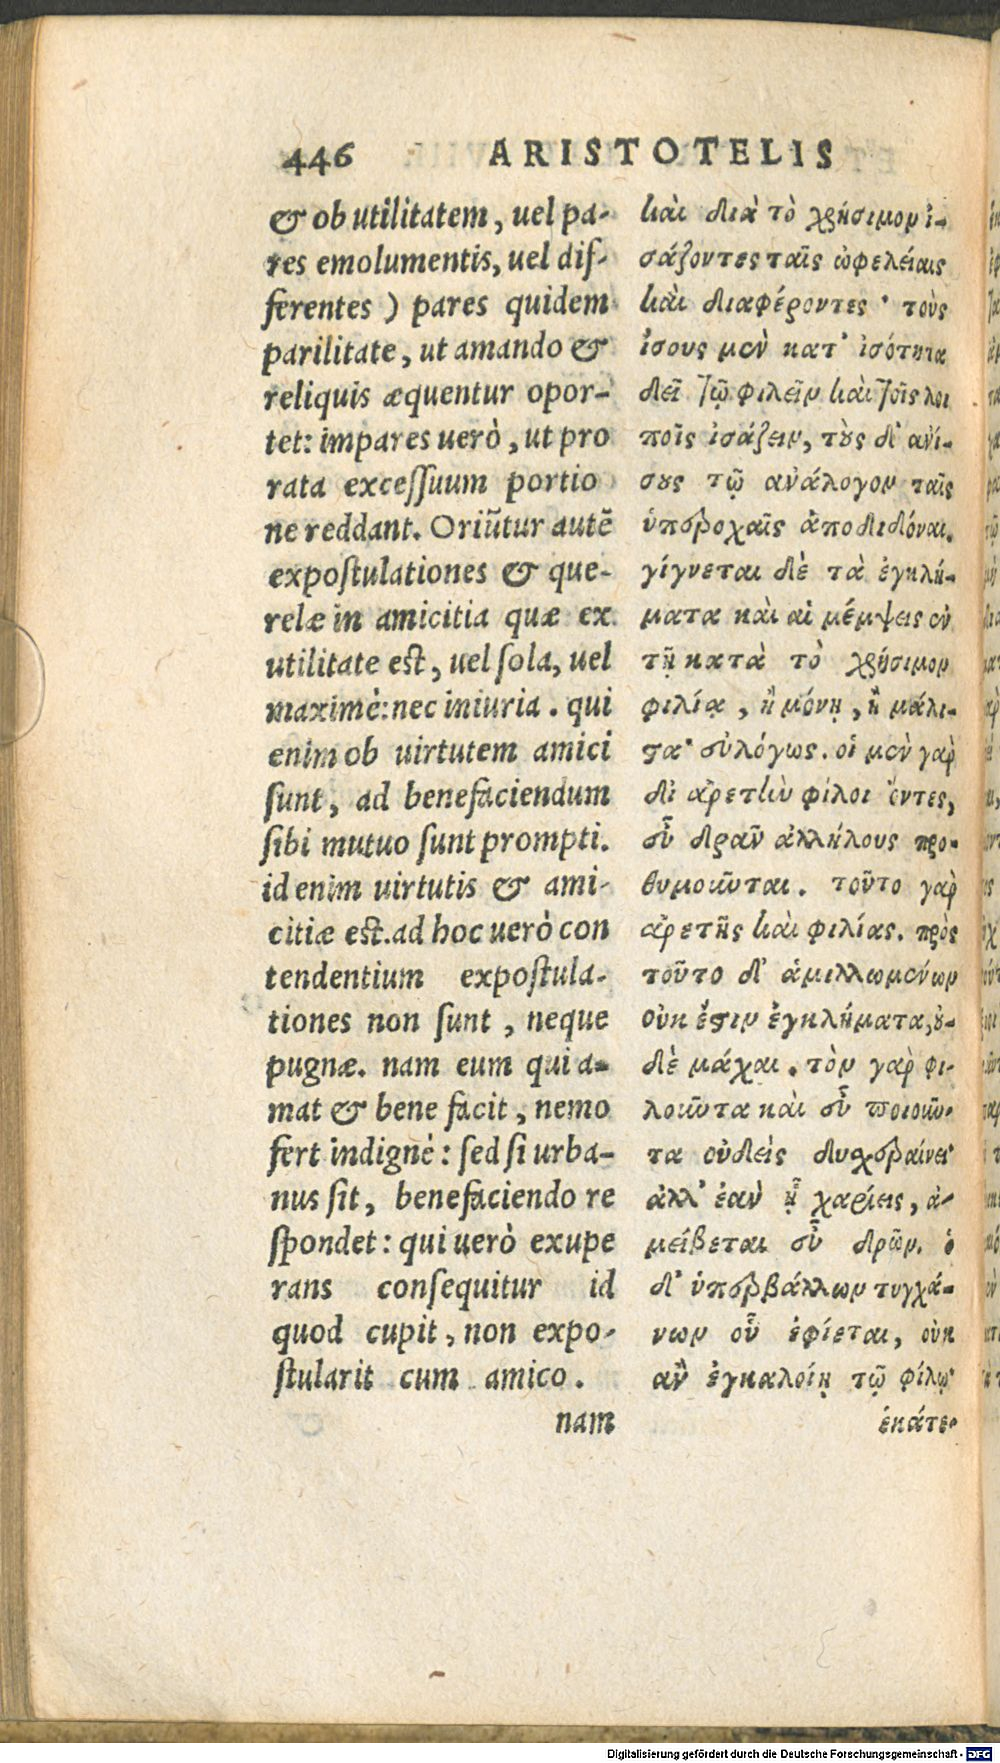 446 ARISTOTELIS
& ob utilitatem, uel pa-
res emolumentis, uel dif-
ferentes ) pares quidem
parilitate, ut amando &
reliquis æquentur opor-
tet: impares uerò, ut pro
rata excessuum portio
ne reddant. Oriũtur autẽ
expostulationes & que-
relæ in amicitia quæ ex
utilitate est, uel sola, uel
maximè: nec iniuria. qui
enim ob uirtutem amici
sunt, ad benefaciendum
sibi mutuo sunt prompti.
id enim uirtutis & ami-
citiæ est. ad hoc uerò con
tendentium expostula-
tiones non sunt, neque
pugnæ. nam eum qui a-
mat & bene facit, nemo
fert indignè: sed si urba-
nus sit, benefaciendo re
spondet: qui uerò exupe
rans consequitur id
quod cupit, non expo-
stularit cum amico.
nam
καὶ διὰ τὸ χρήσιμον ἰ-
σάζοντες ταῖς ὠφελείαις
καὶ διαφέροντες· τοὺς
ἴσους μὲν κατ' ἰσότητα
δεῖ τῷ φιλεῖν καὶ τοῖς λοι
ποῖς ἰσάζειν, τοὺς δ' ἀνί-
σους τῷ ἀνάλογον ταῖς
ὑπεροχαῖς ἀποδιδόναι.
γίγνεται δὲ τὰ ἐγκλή-
ματα καὶ αἱ μέμψεις ἐν
τῇ κατὰ τὸ χρήσιμον
φιλίᾳ, ἢ μόνῃ, ἢ μάλι-
στα· εὐλόγως. οἱ μὲν γὰρ
δι' ἀρετὴν φίλοι ὄντες,
εὖ δρᾶν ἀλλήλους προ-
θυμοῦνται. τοῦτο γὰρ
ἀρετῆς καὶ φιλίας. πρὸς
τοῦτο δ' ἁμιλλωμένων
οὐκ ἔστιν ἐγκλήματα, οὐ-
δὲ μάχαι. τὸν γὰρ φι-
λοῦντα καὶ εὖ ποιοῦν-
τα οὐδεὶς δυσχεραίνει·
ἀλλ' ἐὰν ᾖ χαρίεις, ἀ-
μείβεται εὖ δρῶν. ὁ
δ' ὑπερβάλλων τυγχά-
νων οὗ ἐφίεται, οὐκ
ἂν ἐγκαλοίη τῷ φίλῳ·
ἑκάτε-
Digitalisierung gefördert durch die Deutsche Forschungsgemeinschaft - DFG